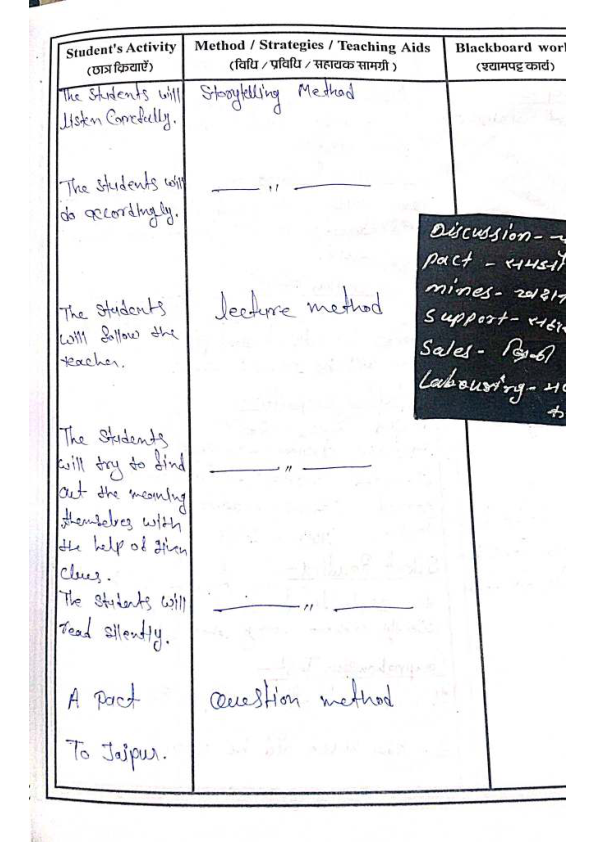 Student's Activity
(छात्र क्रियाएँ)
Method / Strategies / Teaching Aids
(विधि / प्रविधि / सहायक सामग्री)
Blackboard wor
(श्यामपट्ट कार्य)
The Students will
listen Carefully.
Storytelling Method
The Students will
do accordingly.
—— " ——
The Students
will follow the
teacher.
lecture method
Discussion-
Pact - समझौ
mines-
Support- सहा
Sales - बिक्री
Labouring-
The Students
will try to find
out the meaning
themselves with
the help of given
clues.
—— " ——
The Students will
read silently.
—— " ——
A Pact
Question method
To Jaipur.